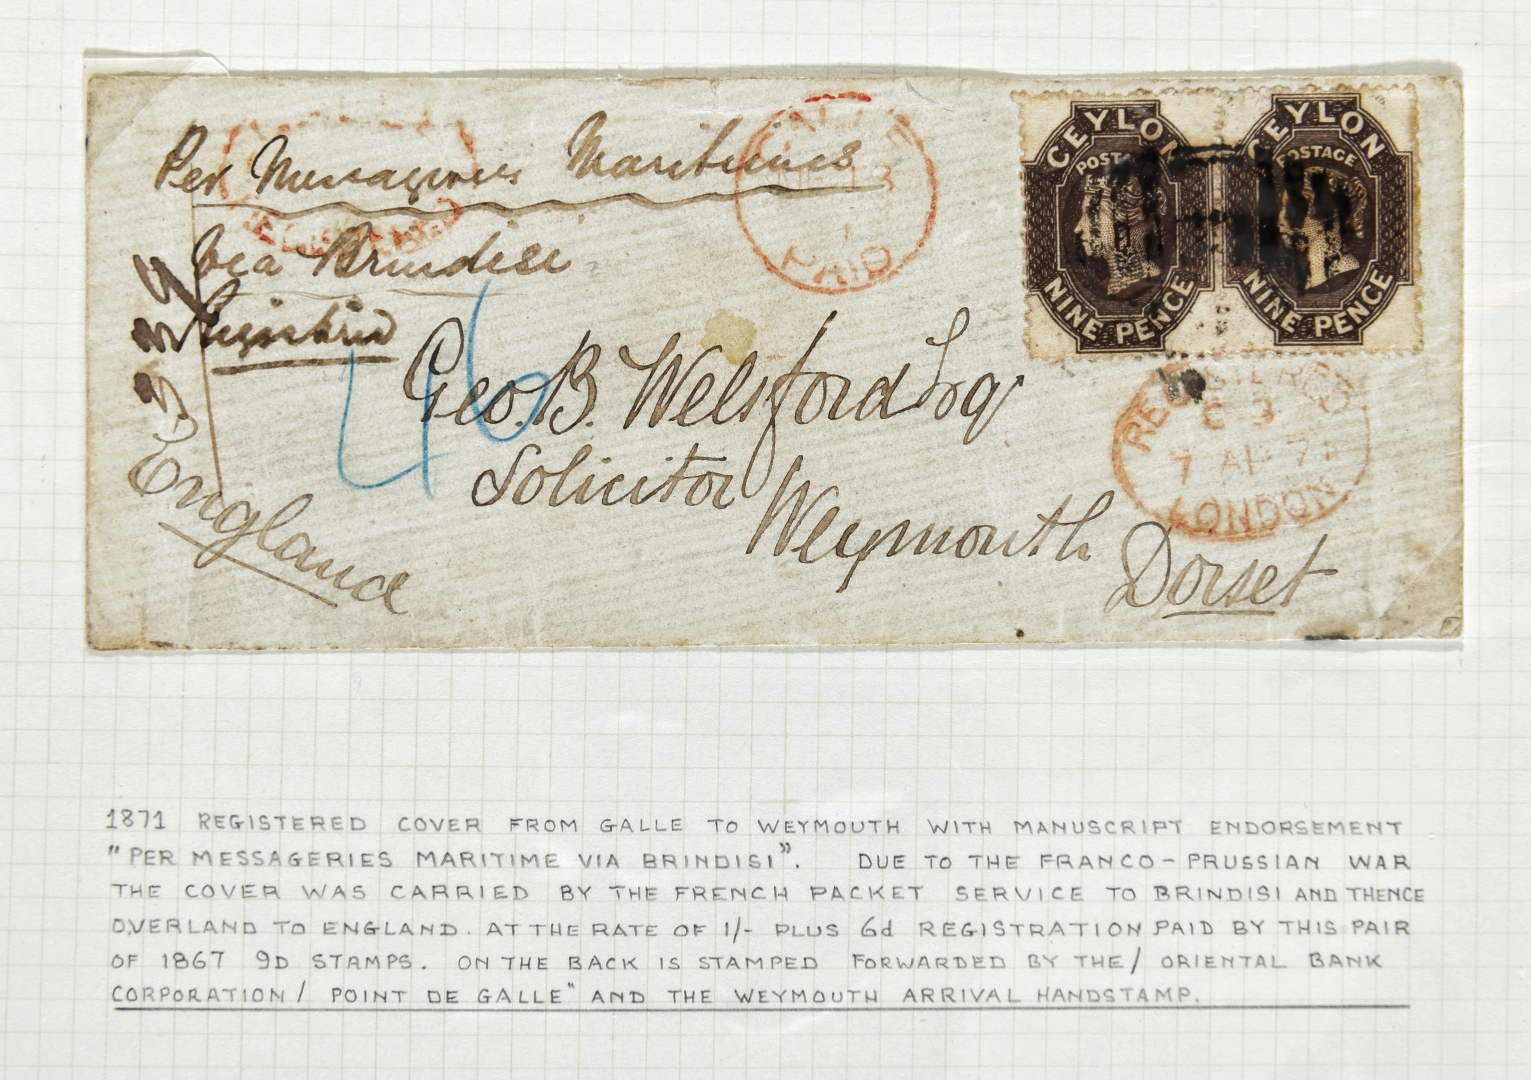 Per Messageries Maritimes
via Brindisi
Registered
Geo. B. Welsford Esq
Solicitor
Weymouth
Dorset
England
46
PAID
CEYLON
POSTAGE
NINE PENCE
CEYLON
POSTAGE
NINE PENCE
REGISTERED
7 AP 71
LONDON
1871 REGISTERED COVER FROM GALLE TO WEYMOUTH WITH MANUSCRIPT ENDORSEMENT
"PER MESSAGERIES MARITIME VIA BRINDISI". DUE TO THE FRANCO-PRUSSIAN WAR
THE COVER WAS CARRIED BY THE FRENCH PACKET SERVICE TO BRINDISI AND THENCE
OVERLAND TO ENGLAND. AT THE RATE OF 1/- PLUS 6d REGISTRATION PAID BY THIS PAIR
OF 1867 9D STAMPS. ON THE BACK IS STAMPED FORWARDED BY THE/ ORIENTAL BANK
CORPORATION/ POINT DE GALLE" AND THE WEYMOUTH ARRIVAL HANDSTAMP.